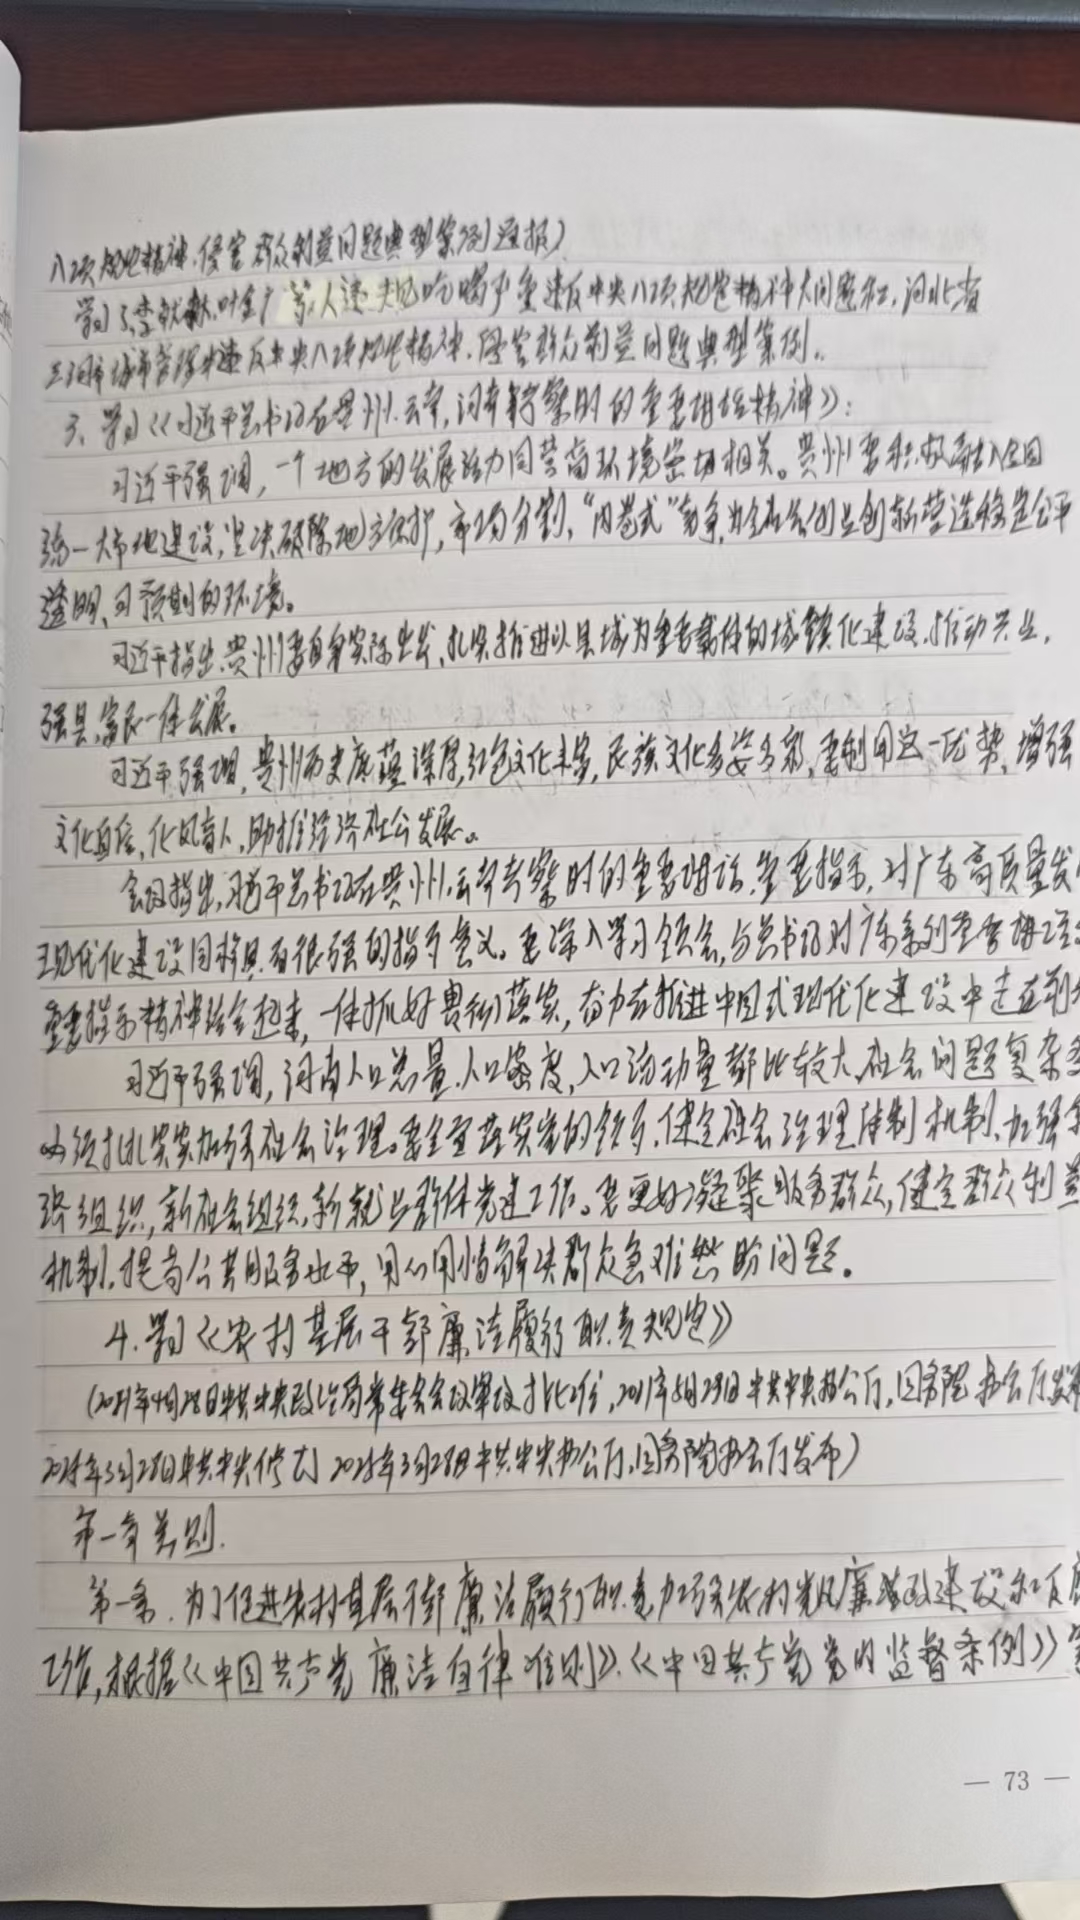 八项规定精神、侵害群众利益问题典型案例通报)
学习了李献林、叶金广等人违规吃喝严重违反中央八项规定精神大问题和,河北省
三河市城市管理违反中央八项规定精神、侵害群众利益问题典型案例。
3、学习《习近平总书记在贵州、云南、河南考察时的重要讲话精神》:
习近平强调,一个地方的发展活力同营商环境密切相关。贵州要积极融入全国
统一大市场建设,坚决破除地方保护,市场分割,“内卷式”竞争,为全社会创业创新营造稳定公平
透明、可预期的环境。
习近平指出,贵州要自身实际出发,扎实推进以县城为重要载体的城镇化建设,推动兴业,
强县,富民一体发展。
习近平强调,贵州历史底蕴深厚,红色文化丰富,民族文化多姿多彩,要利用这一优势,增强
文化自信,化风育人,助推经济社会发展。
会议指出,习近平总书记在贵州、云南考察时的重要讲话、重要指示,对广东高质量发
现代化建设同样具有很强的指导意义。要深入学习领会,与总书记对广东系列重要讲话
重要指示精神结合起来,一体抓好贯彻落实,奋力在推进中国式现代化建设中走在前
习近平强调,河南人口总量、人口密度,人口流动量都比较大,社会问题复杂多
必须扎扎实实加强社会治理。要全面落实党的领导,健全社会治理体制机制,加强
济组织,新社会组织,新就业群体党建工作。要更好凝聚服务群众,健全群众利益
机制,提高公共服务水平,用心用情解决群众急难愁盼问题。
4.学习《农村基层干部廉洁履行职责规定》
(2021年4月28日中共中央政治局常委会会议审议批准,2011年5月23日中共中央办公厅,国务院办公厅发布
2025年3月28日中共中央修订 2025年3月28日中共中央办公厅,国务院办公厅发布)
第一章 总则.
第一条.为了促进农村基层干部廉洁履行职责,加强农村党风廉洁政建设和反腐
工作,根据《中国共产党廉洁自律准则》、《中国共产党党内监督条例》等
— 73 —